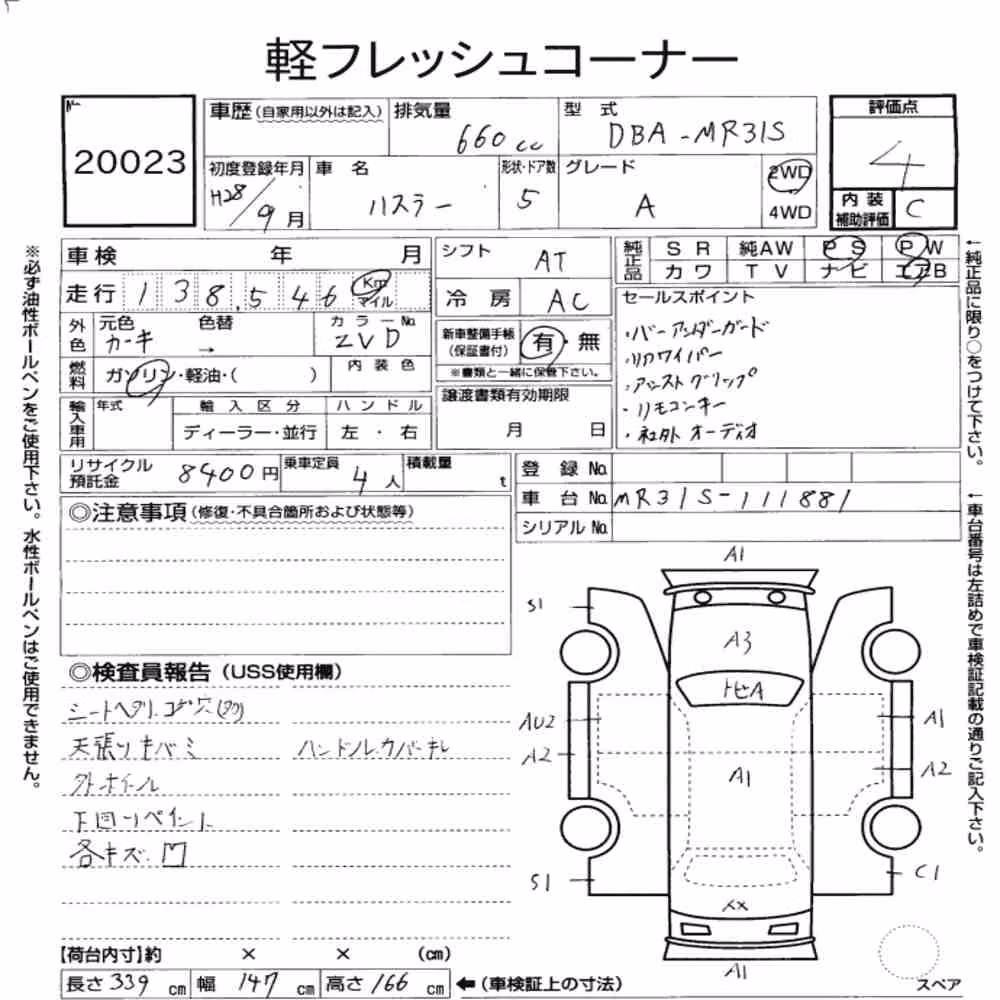 軽フレッシュコーナー
№
20023
車歴 (自家用以外は記入)
排気量
660cc
型式
DBA-MR31S
評価点
4
初度登録年月
H28/9月
車名
ハスラー
形状・ドア数
5
グレード
A
2WD
4WD
内装
補助評価
C
車検 年 月
シフト AT
純正品
SR 純AW PS PW
カワ TV ナビ エアB
走行 138,546 Km
マイル
冷房 AC
セールスポイント
・バーアンダーガード
・リアワイパー
・アシストグリップ
・リモコンキー
・社外オーディオ
外色
元色 色替
カーキ →
カラーNo.
ZVD
新車整備手帳
(保証書付)
有・無
※書類と一緒に保管下さい。
燃料
ガソリン・軽油・( )
内装色
輸入車用
年式
輸入区分
ハンドル
ディーラー・並行
左・右
譲渡書類有効期限
月 日
リサイクル
預託金
8400円
乗車定員
4人
積載量
t
登録No.
車台No. MR31S-111881
シリアルNo.
◎注意事項 (修復・不具合箇所および状態等)
◎検査員報告 (USS使用欄)
シートヘタリ.コゲ穴(タク)
天張りキバミ ハンドルカバーキレ
外ホイール
下回りペイント
各キズ.凹
A1
S1
A3
トビA
AU2
A2
A1
A1
A2
S1
C1
XX
A1
【荷台内寸】約 × × (cm)
長さ339cm 幅147cm 高さ166cm ←(車検証上の寸法)
スペア
※必ず油性ボールペンをご使用下さい。水性ボールペンはご使用できません。
←純正品に限り○をつけて下さい。
←車台番号は左詰めで車検証記載の通りご記入下さい。